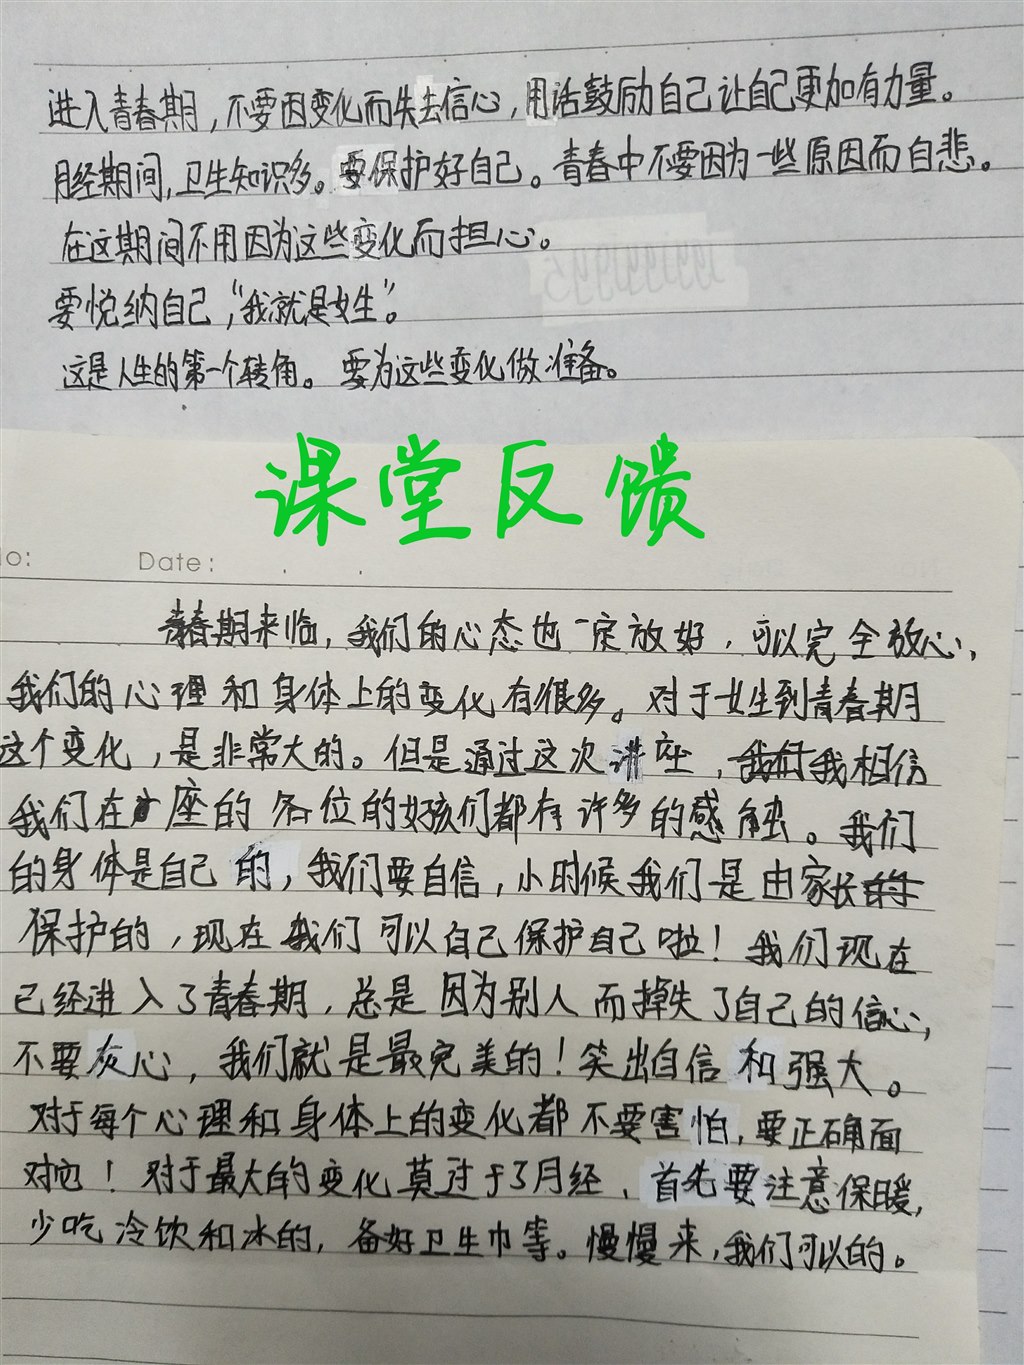 进入青春期，不要因变化而失去信心，用话鼓励自己让自己更加有力量。
月经期间，卫生知识多。要保护好自己。青春中不要因为一些原因而自悲。
在这期间不用因为这些变化而担心。
要悦纳自己，“我就是女生”。
这是人生的第一个转角。要为这些变化做准备。
课堂反馈
No: Date:
青春期来临，我们的心态也一定放好，可以完全放心，
我们的心理和身体上的变化有很多。对于女生到青春期
这个变化，是非常大的。但是通过这次讲座，我们我相信
我们在座的各位的女孩们都有许多的感触。我们
的身体是自己的，我们要自信，小时候我们是由家长的
保护的，现在我们可以自己保护自己啦！我们现在
已经进入了青春期，总是因为别人而掉失了自己的信心，
不要灰心，我们就是最完美的！笑出自信和强大。
对于每个心理和身体上的变化都不要害怕，要正确面
对它！对于最大的变化莫过于了月经，首先要注意保暖，
少吃冷饮和冰的，备好卫生巾等。慢慢来，我们可以的。